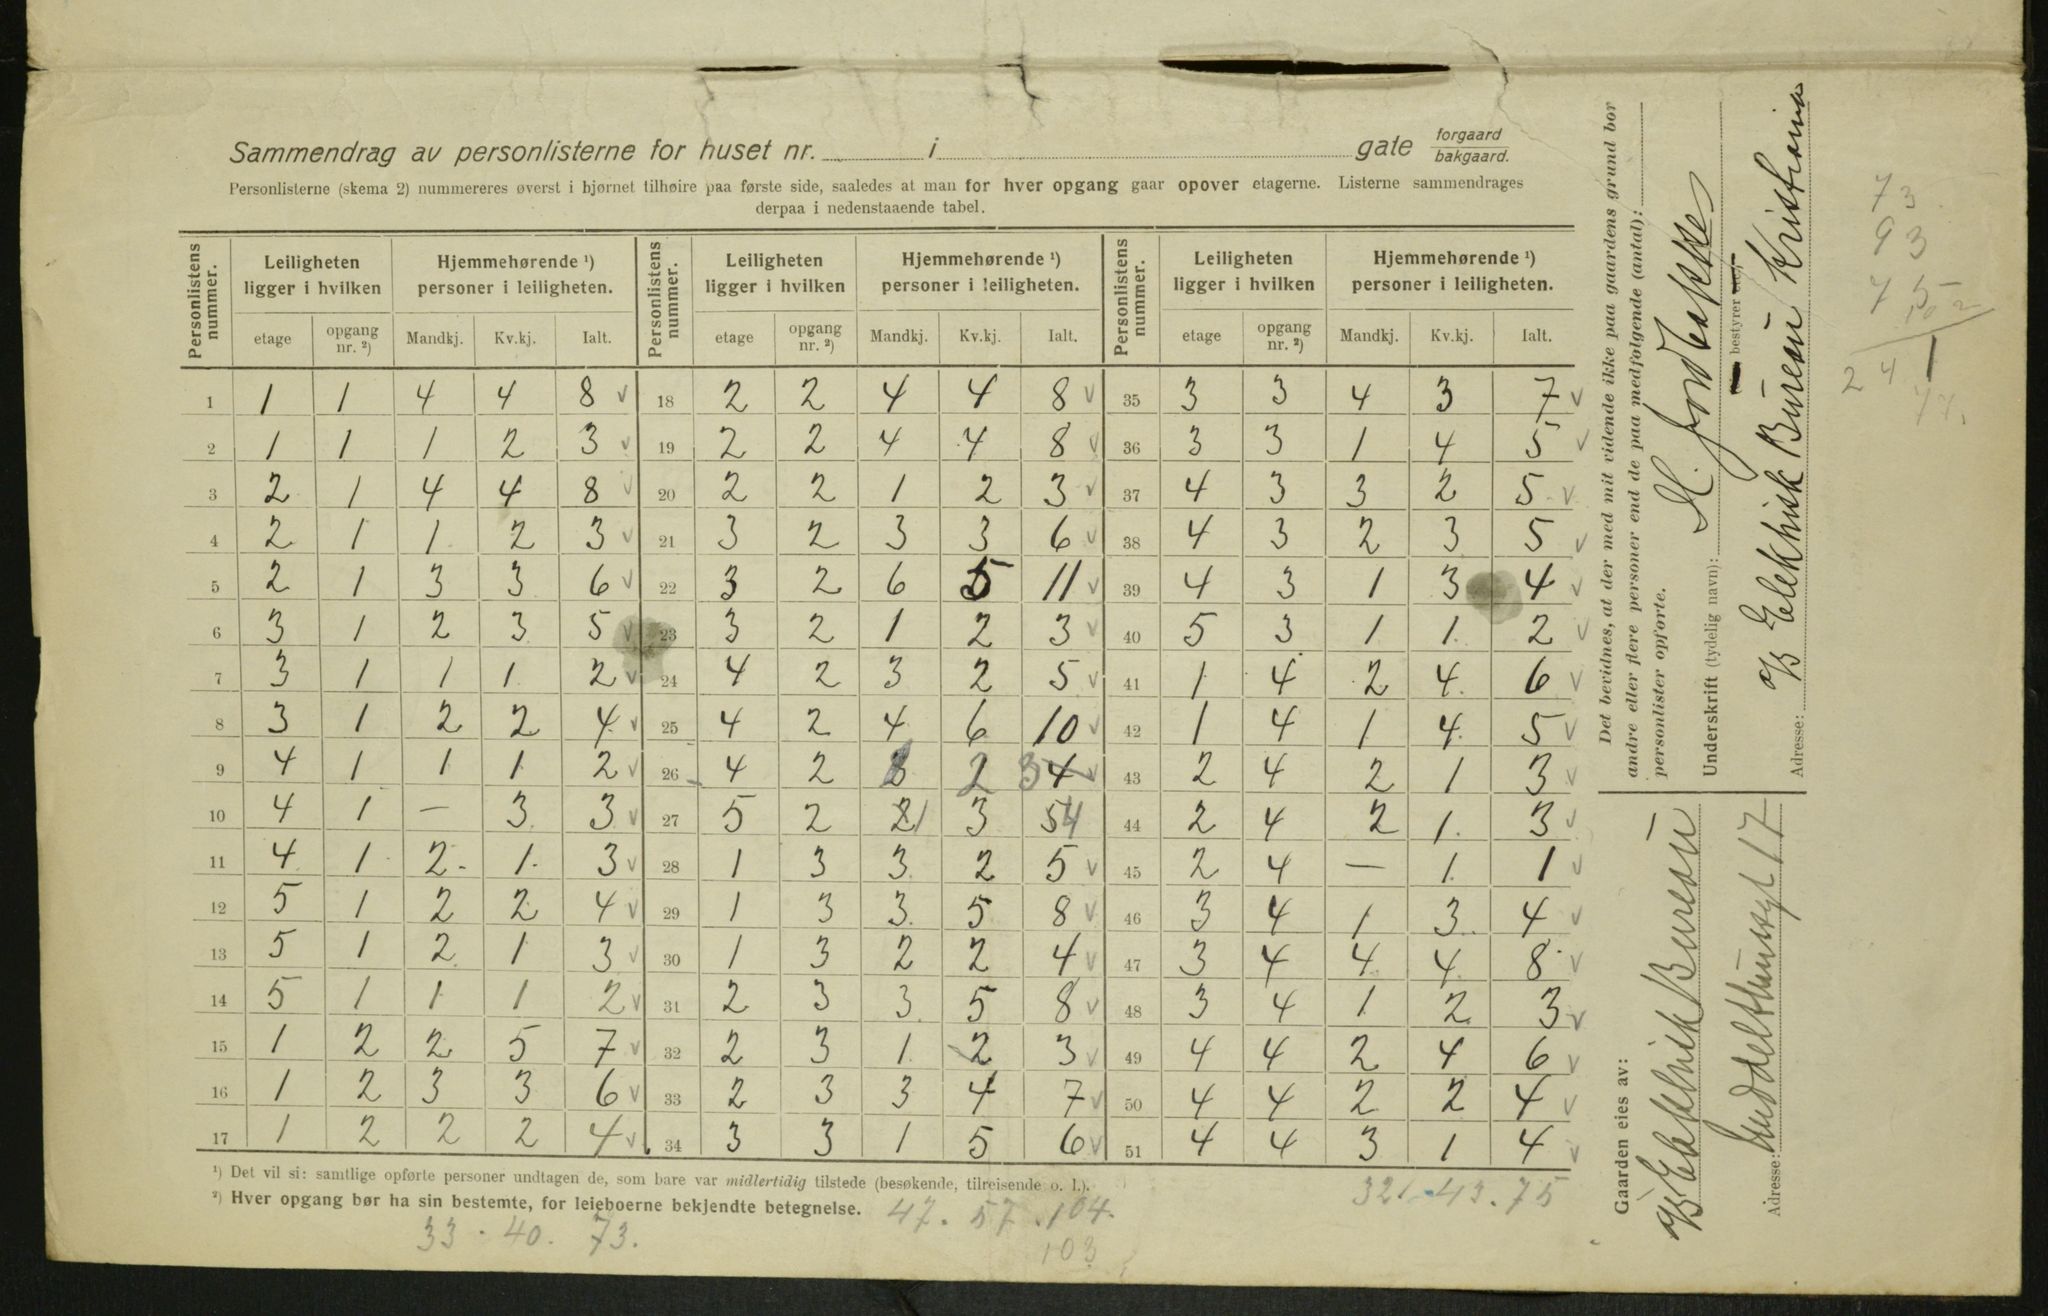 Sammendrag av personlisterne for huset nr. i gate forgaard
bakgaard.
Personlisterne (skema 2) nummereres øverst i hjørnet tilhøire paa første side, saaledes at man for hver opgang gaar opover etagerne. Listerne sammendrages
derpaa i nedenstaaende tabel.
Personlistens nummer. Leiligheten ligger i hvilken Hjemmehørende ¹) personer i leiligheten. Personlistens nummer. Leiligheten ligger i hvilken Hjemmehørende ¹) personer i leiligheten. Personlistens nummer. Leiligheten ligger i hvilken Hjemmehørende ¹) personer i leiligheten.
etage opgang nr. ²) Mandkj. Kv.kj. Ialt. etage opgang nr. ²) Mandkj. Kv.kj. Ialt. etage opgang nr. ²) Mandkj. Kv.kj. Ialt.
1 1 1 4 4 8 v 18 2 2 4 4 8 v 35 3 3 4 3 7 v
2 1 1 1 2 3 v 19 2 2 4 4 8 v 36 3 3 1 4 5 v
3 2 1 4 4 8 v 20 2 2 1 2 3 v 37 4 3 3 2 5 v
4 2 1 1 2 3 v 21 3 2 3 3 6 v 38 4 3 2 3 5 v
5 2 1 3 3 6 v 22 3 2 6 5 11 v 39 4 3 1 3 4 v
6 3 1 2 3 5 v 23 3 2 1 2 3 v 40 5 3 1 1 2 v
7 3 1 1 1 2 v 24 4 2 3 2 5 v 41 1 4 2 4 6 v
8 3 1 2 2 4 v 25 4 2 4 6 10 v 42 1 4 1 4 5 v
9 4 1 1 1 2 v 26 4 2 2 3 4 v 43 2 4 2 1 3 v
10 4 1 — 3 3 v 27 5 2 2 1 3 5 4 44 2 4 2 1 3 v
11 4 1 2 1 3 v 28 1 3 3 2 5 v 45 2 4 — 1 1 v
12 5 1 2 2 4 v 29 1 3 3 5 8 v 46 3 4 1 3 4 v
13 5 1 2 1 3 v 30 1 3 2 2 4 v 47 3 4 4 4 8 v
14 5 1 1 1 2 v 31 2 3 3 5 8 v 48 3 4 1 2 3 v
15 1 2 2 5 7 v 32 2 3 1 2 3 v 49 4 4 2 4 6 v
16 1 2 3 3 6 v 33 2 3 3 4 7 v 50 4 4 2 2 4 v
17 1 2 2 2 4 v 34 3 3 1 5 6 v 51 4 4 3 1 4 v
¹) Det vil si: samtlige opførte personer undtagen de, som bare var midlertidig tilstede (besøkende, tilreisende o. l.).
²) Hver opgang bør ha sin bestemte, for leieboerne bekjendte betegnelse.
33 . 40 . 73.
47 . 57 . 104.
103
32 . 43 . 75
Det bevidnes, at der med mit vidende ikke paa gaardens grund bor
andre eller flere personer end de paa medfølgende (antal):
personlister opførte.
Underskrift (tydelig navn):
bestyrer
Adresse: Elektrisk Bureau Kristiania
Gaarden eies av:
Elektrisk Bureau
Adresse: Middelthunsgt 17
73
93
75
102
241